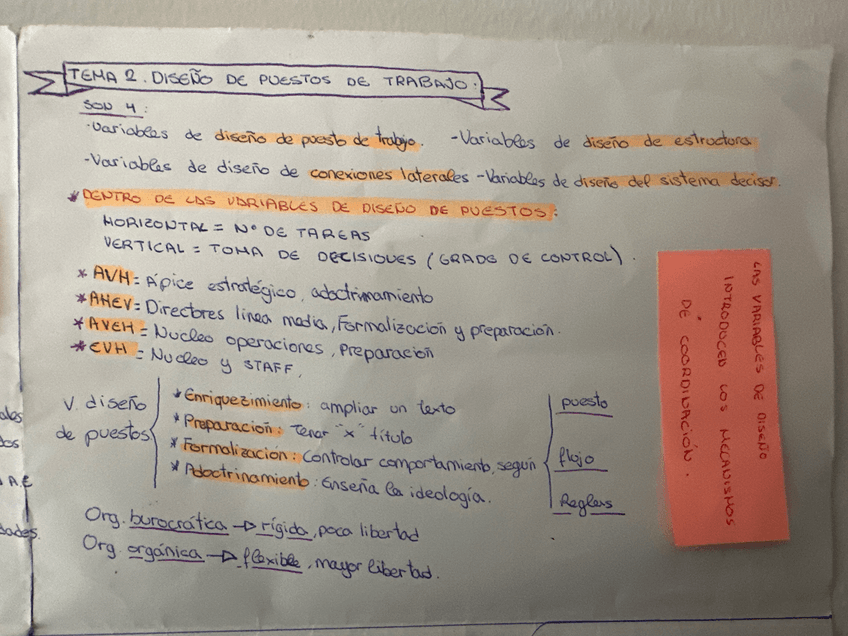 TEMA 2. DISEÑO DE PUESTOS DE TRABAJO:
SON 4:
-Variables de diseño de puesto de trabajo. -Variables de diseño de estructura
-Variables de diseño de conexiones laterales -Variables de diseño del sistema decisor.
* DENTRO DE LAS VARIABLES DE DISEÑO DE PUESTOS:
HORIZONTAL = Nº DE TAREAS
VERTICAL = TOMA DE DECISIONES (GRADO DE CONTROL).
* AVH = Ápice estratégico, adoctrinamiento
* AHEV = Directores línea media, Formalización y preparación.
* AVEH = Nucleo operaciones, Preparación
* EVH = Nucleo y STAFF.
V. diseño de puestos
* Enriquezimiento: ampliar un texto
* Preparación: Tener "x" título
* Formalización: Controlar comportamiento, según
* Adoctrinamiento: Enseña la ideología.
puesto
flujo
Reglas
Org. burocrática → rígida, poca libertad
Org. orgánica → flexible, mayor libertad.
LAS VARIABLES DE DISEÑO
INTRODUCEN LOS MECANISMOS
DE COORDINACIÓN.